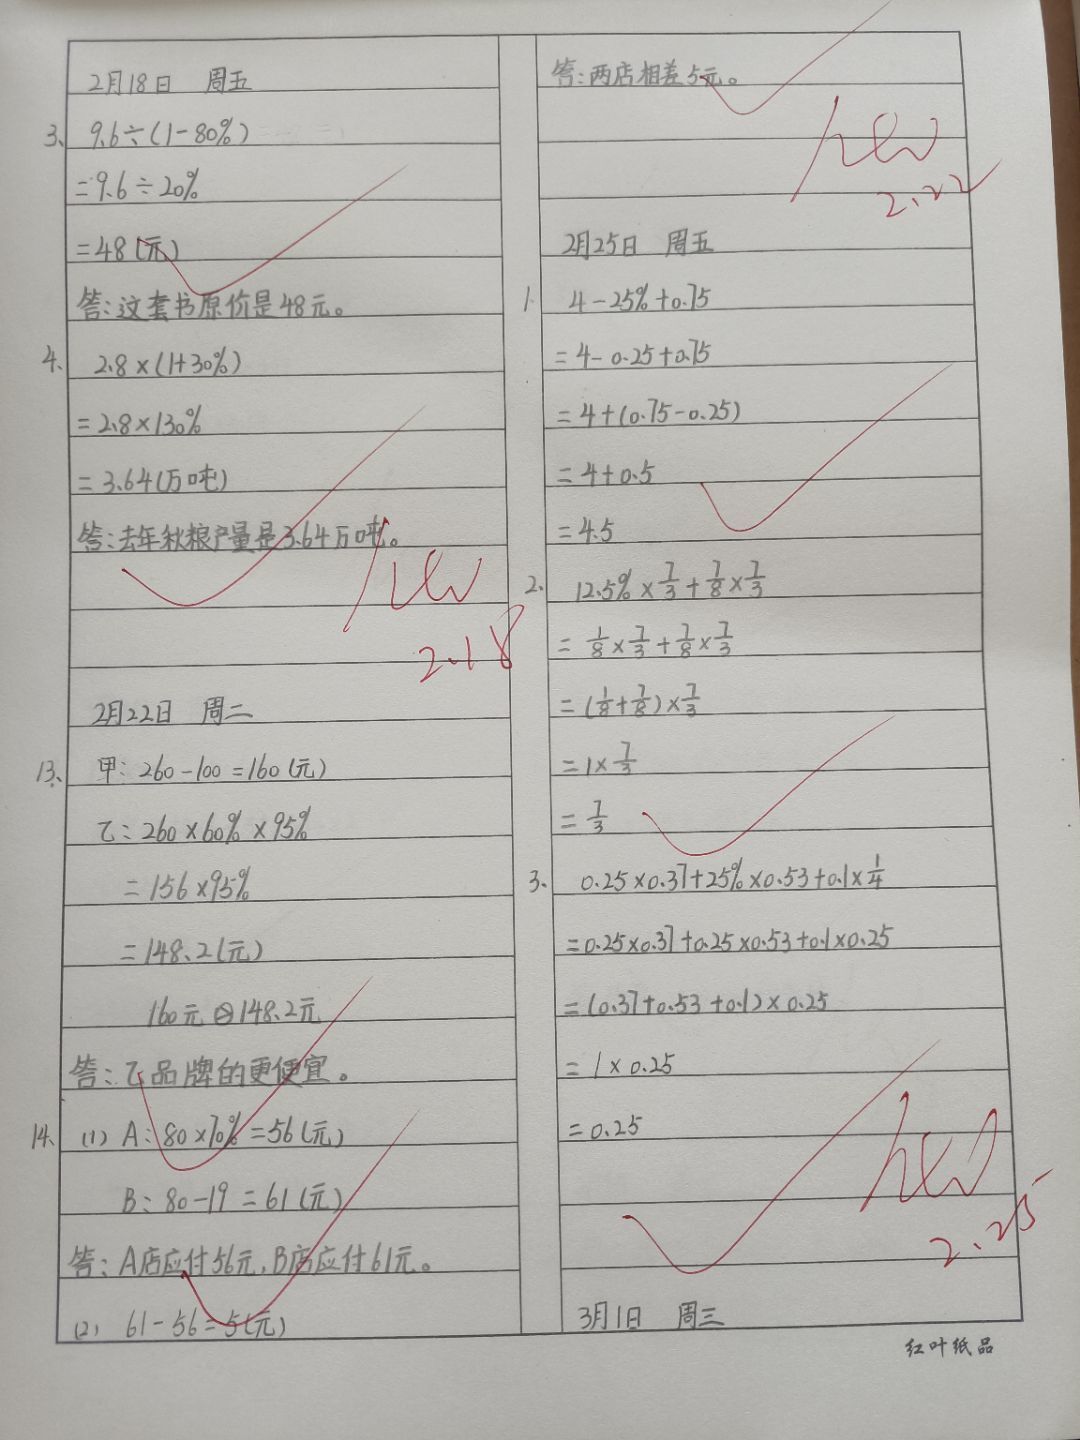 2月18日 周五
3、 9.6÷(1-80%)
=9.6÷20%
=48(元)
答:这套书原价是48元。
4、 2.8×(1+30%)
=2.8×130%
=3.64(万吨)
答:去年秋粮产量是3.64万吨。
2.18
2月22日 周二
13、 甲: 260-100=160(元)
乙: 260×60%×95%
=156×95%
=148.2(元)
160元>148.2元
答:乙品牌的更便宜。
14、 (1) A: 80×70%=56(元)
B: 80-19=61(元)
答:A店应付56元,B店应付61元。
(2) 61-56=5(元)
答:两店相差5元。
2.22
2月25日 周五
1. 4-25%+0.75
=4-0.25+0.75
=4+(0.75-0.25)
=4+0.5
=4.5
2. 12.5%×7/3+7/8×7/3
=1/8×7/3+7/8×7/3
=(1/8+7/8)×7/3
=1×7/3
=7/3
3. 0.25×0.37+25%×0.53+0.1×1/4
=0.25×0.37+0.25×0.53+0.1×0.25
=(0.37+0.53+0.1)×0.25
=1×0.25
=0.25
2.25
3月1日 周三
红叶纸品